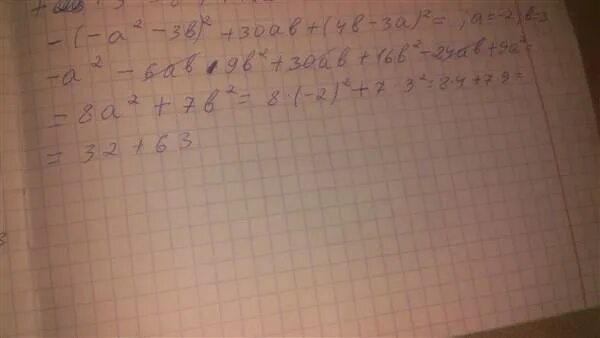 -(-a² - 3b)² + 30ab + (4b - 3a)² = ; a = -2, b = 3
-a² - 6ab - 9b² + 30ab + 16b² - 24ab + 9a² =
= 8a² + 7b² = 8 · (-2)² + 7 · 3² = 8·4 + 7·9 =
= 32 + 63